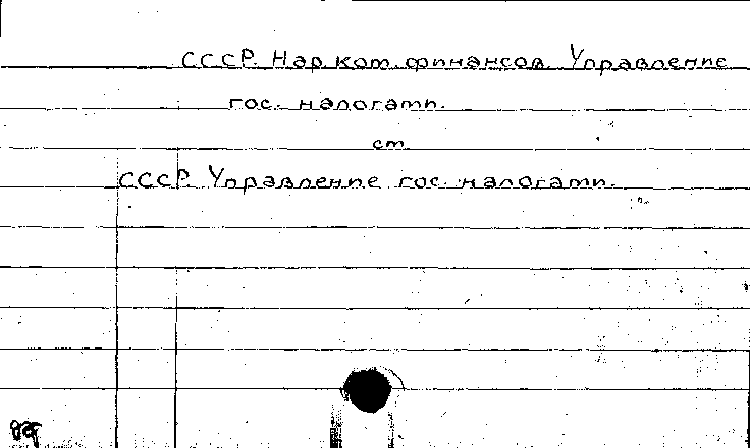 СССР. Нар. ком. финансов. Управление
гос. налогами.
см.
СССР. Управление гос. налогами.